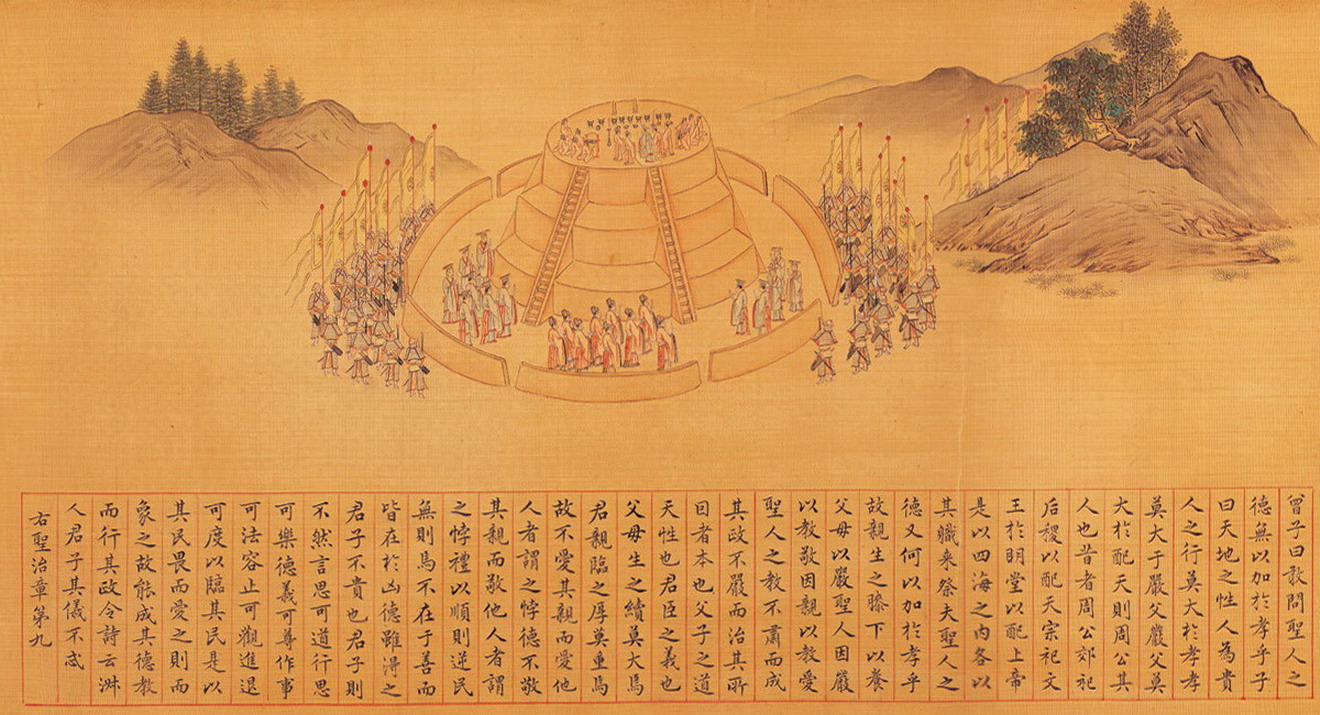 曾子曰敢問聖人之
德無以加於孝乎子
曰天地之性人為貴
人之行莫大於孝孝
莫大于嚴父嚴父莫
大於配天則周公其
人也昔者周公郊祀
后稷以配天宗祀文
王於明堂以配上帝
是以四海之内各以
其職来祭夫聖人之
德又何以加於孝乎
故親生之膝下以養
父母以嚴聖人因嚴
以教敬因親以教愛
聖人之教不肅而成
其政不嚴而治其所
曰者本也父子之道
天性也君臣之義也
父母生之續莫大焉
君親臨之厚莫重焉
故不愛其親而愛他
人者謂之悖德不敬
其親而敬他人者謂
之悖禮以順則逆民
無則焉不在于善而
皆在於凶德雖得之
君子不貴也君子則
不然言思可道行思
可樂德義可尊作事
可法容止可觀進退
可度以臨其民是以
其民畏而愛之則而
象之故能成其德教
而行其政令詩云淑
人君子其儀不忒
右聖治章第九